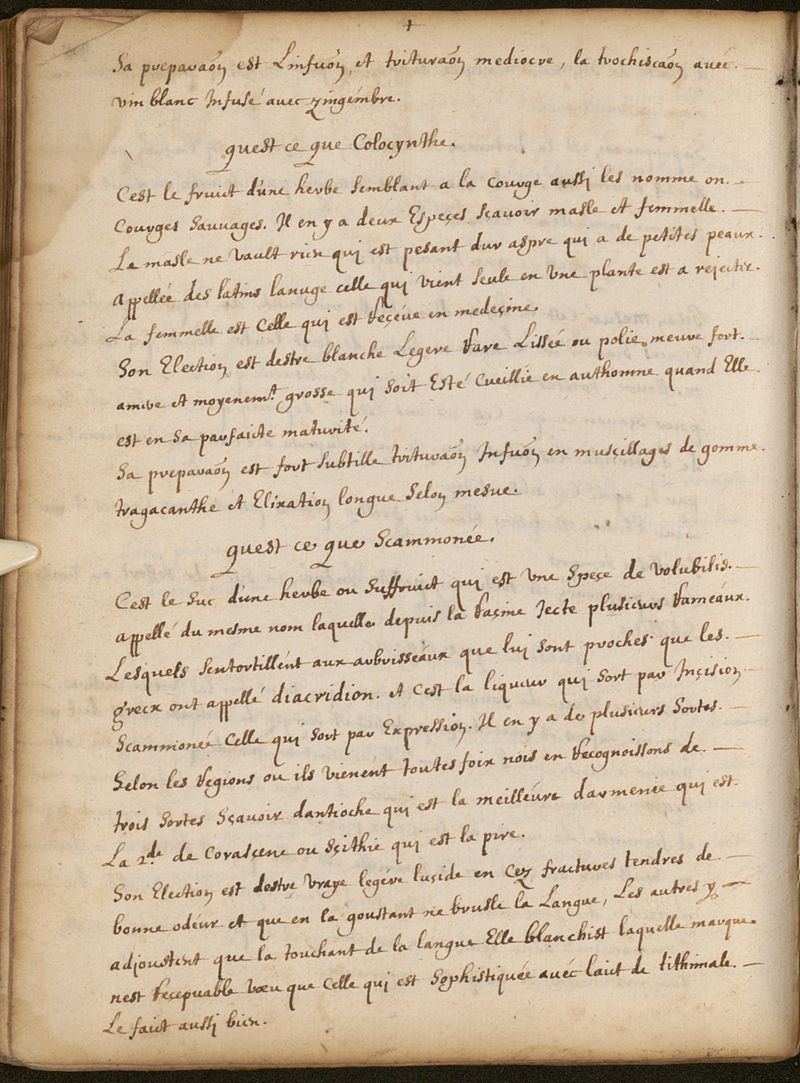 Sa preparaõn est Linfuõn, et trituraõn mediocre, la trochiscaõn avéc
vin blanc Infusé avec zingémbre.
quest ce que Colocynthe.
C'est le fruict d'une herbe semblant a la courge aussi les nomme on
Courges Sauvages. Il en y a deux Espeçes sçavoir masle et femmelle.
La masle ne vault rien qui est pesant dur aspre qui a de petites peaux.
Appellée des latins lanuge celle qui vient seule en une plante est a rejecter.
La femmelle est Celle qui est Reçéue en medeçine.
Son Election est destre blanche Legere Rare Lissée ou polie, meure fort
amere et moyenemt. grosse qui soit Esté Cueillie en authomne quand Elle
est en sa parfaicte maturité.
Sa preparaõn est fort subtille trituraõn Infuõn en musçillages de gomme
tragacanthe et Elixation longue selon mesue.
quest ce que Scammonée.
C'est le suc d'une herbe ou suffruict qui est une speçe de volubilis.
appellé du mesme nom laquelle depuis la Raçine Jecte plusieurs Rameaux.
Lesquels sentortillént aux arbrisseaux que lui sont proches que les
grecx ont appellé diacridion. et C'est la liqueur qui sort par Inçision
Scammonée Celle qui sort par Expression. Il en y a de plusieurs Sortes
Selon les Regions ou ils vienent toutes foix nois en Recognoissons de
trois Sortes Sçavoir dantioche qui est la meilleure darmenie qui est
La 2de. de Corasçene ou sçithie qui est la pire.
Son Election est destre vraye legére luçide en Cez fractures tendres de
bonne odéur et que en la goustant ne brusle la Langue, Les autres y
adjoustent que la touchant de la langue Elle blanchist laquelle marque
nest Reçepvable veeu que Celle qui est Sophistiquée avéc laict de tithimale.
Le faict aussi bien.